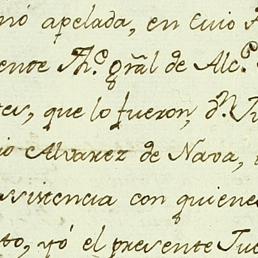 nó apelada, en cuio
ente Thẽ. gr̃al de Alc.ᵉ
es, que lo fueron, d.ⁿ
io Alvarez de Nava,
asistencia con quiene
to, yó el presente Jue